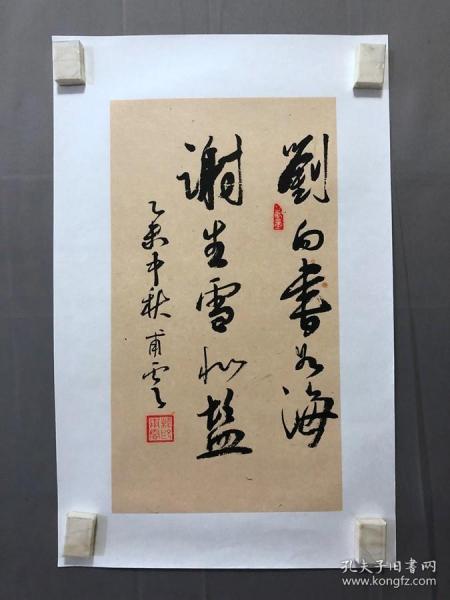 劉向書如海
謝生雪似鹽
乙未中秋甫雲
孔夫子旧书网
www.kongfz.com